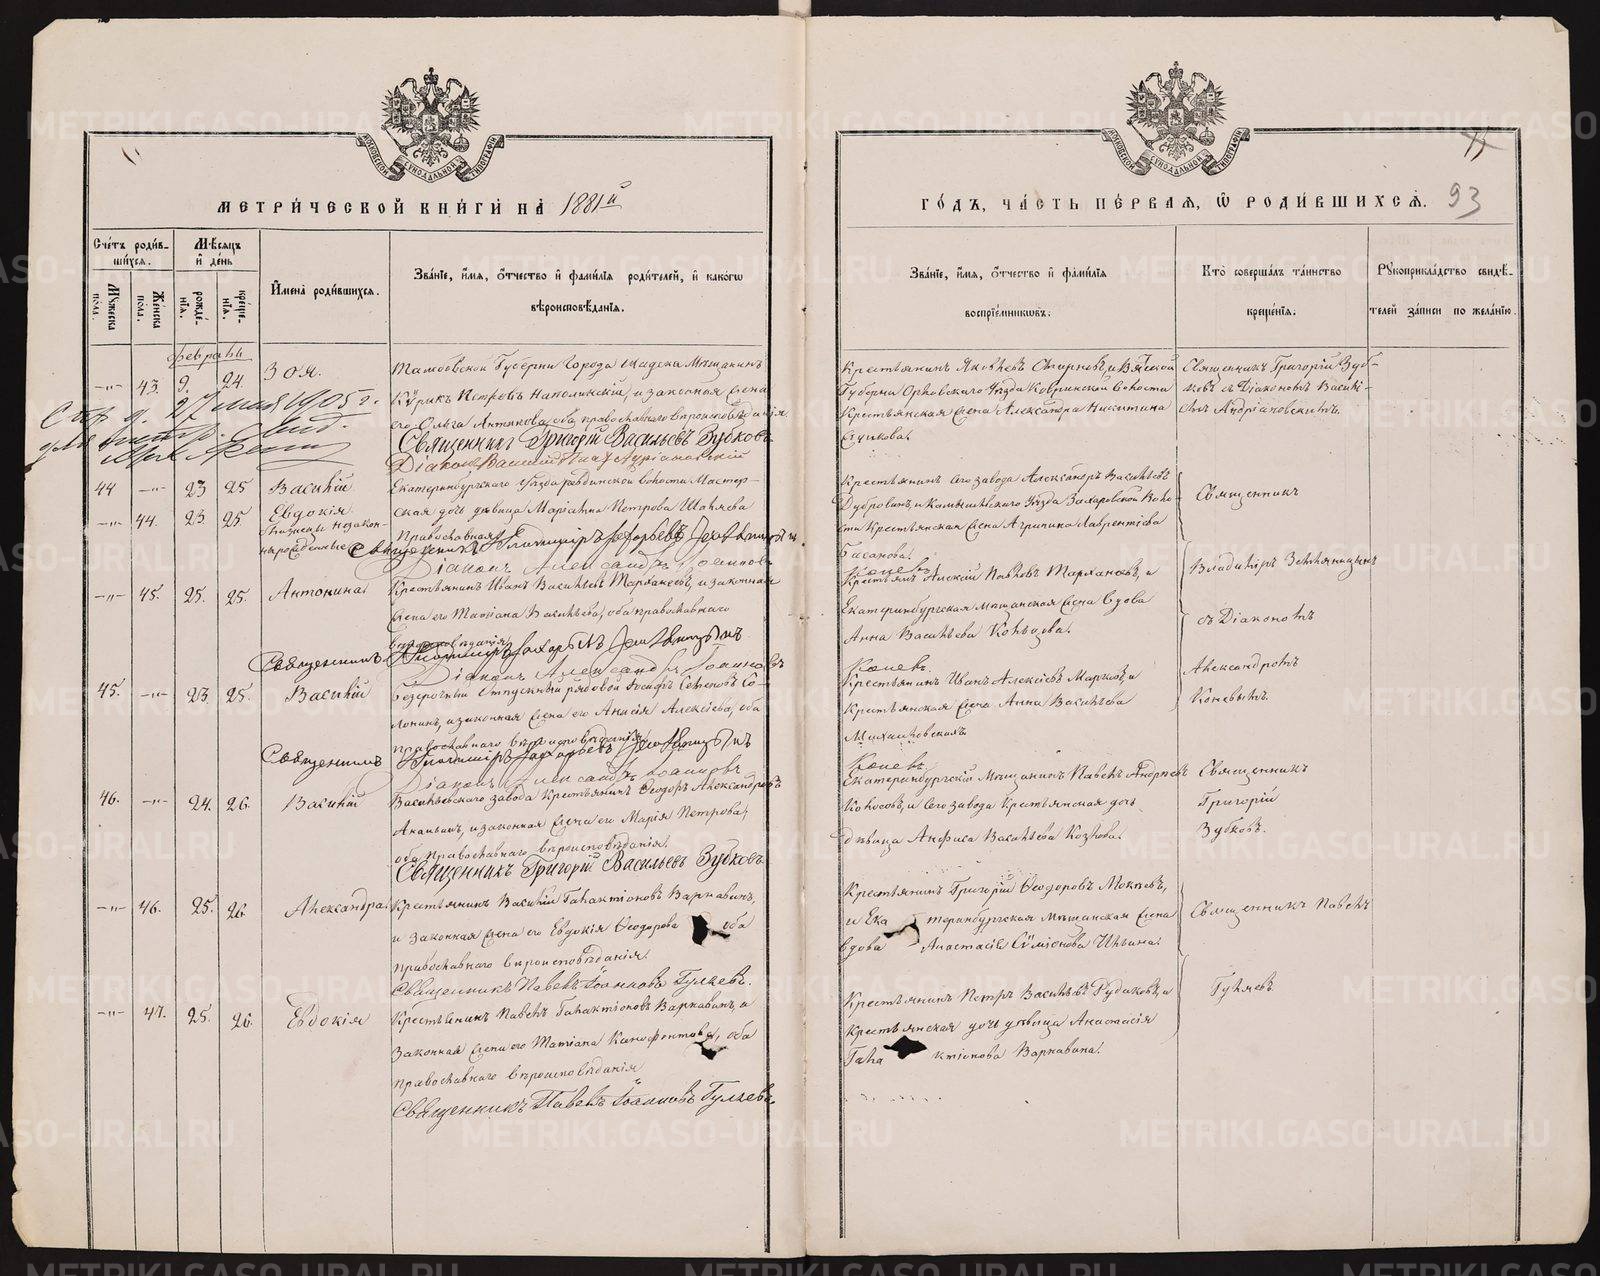 МЕТРИЧЕСКОЙ КНИГИ НА 1881й
ГОДЪ, ЧАСТЬ ПЕРВАЯ, Ѿ РОДИВШИХСЯ. 93
Счетъ родившихся.
Мѣсяцъ и день
Мужеска пола.
Женска пола.
рожденія.
крещенія.
Имена родившихся.
Званіе, имя, отчество и фамилія родителей, и какогѡ вѣроисповѣданія.
Званіе, имя, отчество и фамилія воспріемниковъ.
Кто совершалъ таинство крещенія.
Рукоприкладство свидѣтелей записи по желанію.
февраль
—"— 43. 9. 24. Зоя.
Тамбовской Губерни города Шадска Мѣщанинъ
Кирикъ Петровъ Наполинскій, и законная жена
его Ольга Антипова, оба православнаго вѣроисповѣданія.
Священникъ Григорій Васильевъ Зубковъ
27 мая 1905 г.
Крестьянинъ Яковлевъ Смирновъ, и Вятской
Губерни Орловскаго Уѣзда Ковринской волости
Крестьянская жена Александра Никитина
Священникъ Григорій Зуб-
ковъ съ Діакономъ Васи-
44 —"— 23 25 Василій
—"— 44. 23. 25. Евдокія
близнецы незакон-
норожденные
Екатеринбургскаго Уѣзда Ревдинской волости Мастер-
ская дочь дѣвица Маріанна Петрова Шаляева
Православная
Діаконъ Александръ
Крестьянинъ сего завода Александръ Васильевъ
Дубровинъ, и Камышловскаго Уѣзда Захаровской Воло-
сти Крестьянская жена Агрипина Лаврентіева
Басанова.
Священникъ
—"— 45. 25. 25. Антонина
Крестьянинъ Иванъ Васильевъ Тарханеевъ, и законная
жена его Татіана Васильева, оба православнаго
Священникъ
Діаконъ Александръ
Коневъ
Крестьян. Алексій Павловъ Тарханеевъ, и
Екатеринбургская мѣщанская жена вдова
Анна Васильева Кольцова.
Владиміръ Земляницынъ
съ Діакономъ
45. —"— 23. 25. Василій
Безсрочный отпускный рядовой Іосифъ Семеновъ Со-
лонинъ, и законная жена его Анисія Алексіева, оба
православнаго вѣроисповѣданія
Священникъ
Діаконъ Александръ
Коневъ.
Крестьянинъ Иванъ Алексіевъ Марковъ, и
Крестьянская жена Анна Васильева
Михаиловская.
Александромъ
Коневымъ.
46. —"— 24. 26. Василій
Васильевскаго завода Крестьянинъ Ѳеодоръ Александровъ
Ананьинъ, и законная жена его Марія Петрова,
оба православнаго вѣроисповѣданія.
Священникъ Григорій Васильевъ Зубковъ
Коневъ.
Екатеринбургскій Мѣщанинъ Павелъ Андреевъ
Колосовъ, и сего завода Крестьянская дочь
дѣвица Анфиса Васильева Козлова.
Священникъ
Григорій
Зубковъ.
—"— 46. 25. 26. Александра.
Крестьянинъ Василій Галактіоновъ Варнавинъ,
и законная жена его Евдокія Ѳеодорова оба
православнаго вѣроисповѣданія.
Священникъ Павелъ Іоанновъ Гуляевъ.
Крестьянинъ Григорій Ѳеодоровъ Мокѣевъ,
и Ека теринбургская мѣщанская жена
вдова Анастасія Симіонова Ильина.
Священникъ Павелъ
Гуляевъ.
—"— 47. 25. 26. Евдокія
Крестьянинъ Павелъ Галактіоновъ Варнавинъ, и
законная жена его Татіана Ксенофонтова, оба
православнаго вѣроисповѣданія
Священникъ Павелъ Іоанновъ Гуляевъ.
Крестьянинъ Петръ Васильевъ Рудаковъ, и
Крестьянская дочь дѣвица Анастасія
Гала ктіонова Варнавина.